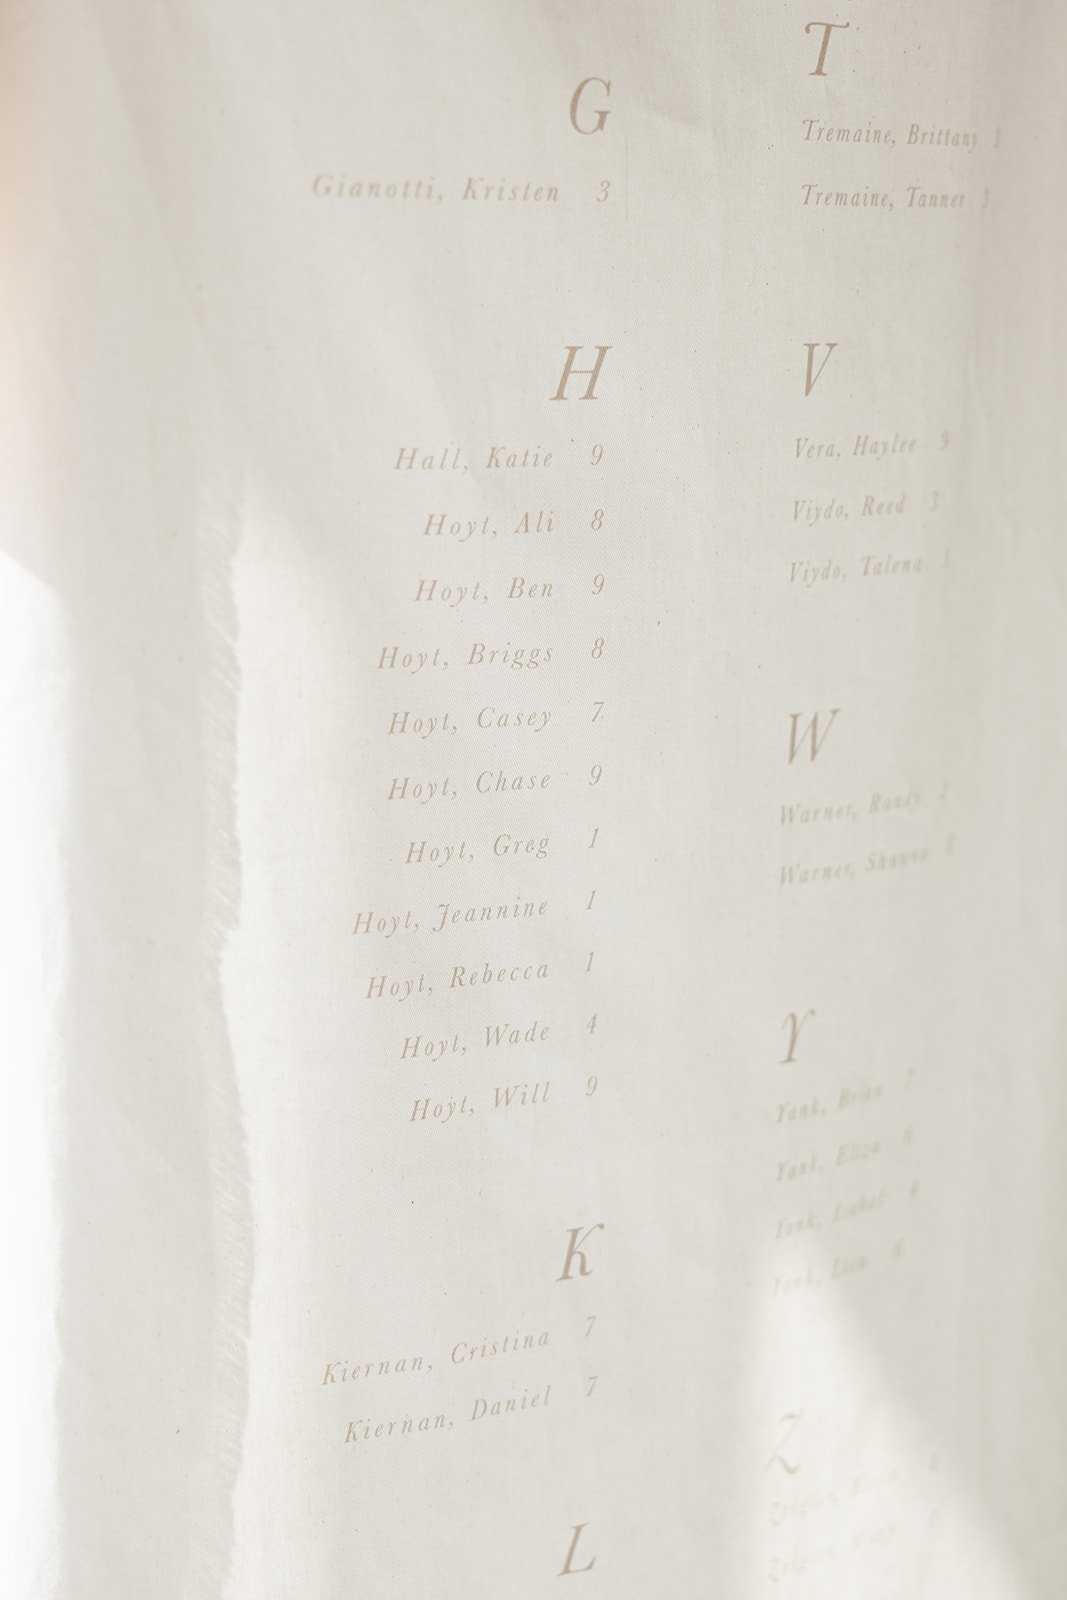 G
Gianotti, Kristen 3
H
Hall, Katie 9
Hoyt, Ali 8
Hoyt, Ben 9
Hoyt, Briggs 8
Hoyt, Casey 7
Hoyt, Chase 9
Hoyt, Greg 1
Hoyt, Jeannine 1
Hoyt, Rebecca 1
Hoyt, Wade 4
Hoyt, Will 9
K
Kiernan, Cristina 7
Kiernan, Daniel 7
L
T
Tremaine, Brittany 3
Tremaine, Tanner 3
V
Vera, Haylee 9
Viydo, Reed 3
Viydo, Talena 3
W
Warner, Randy 2
Warner, Shauna 2
Y
Yank,
Yank, 6
Yank, 6
Yank, 6
Z